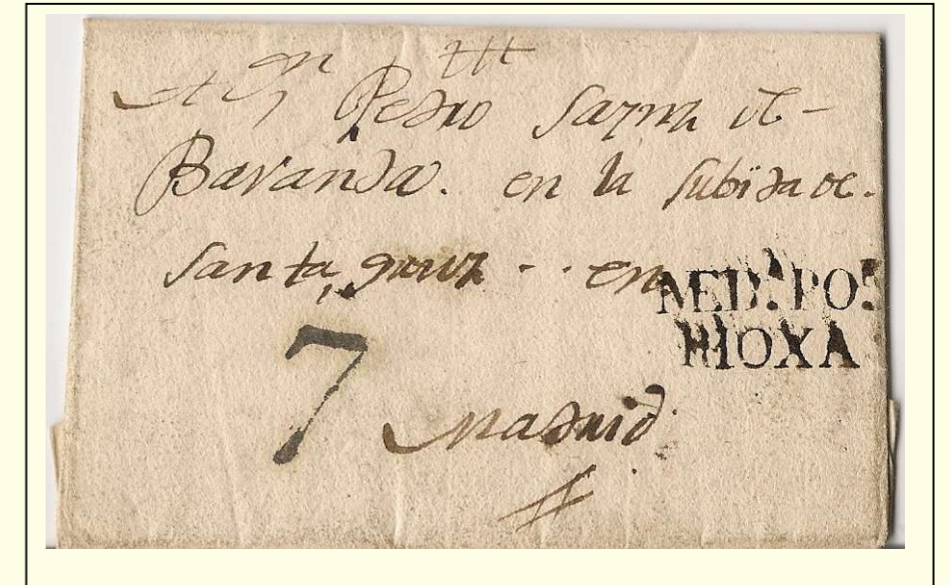 A Dn Pedro de
Baranda. en la subida de
santa cruz - - en
MEDA. POR
RIOXA
7 Madrid